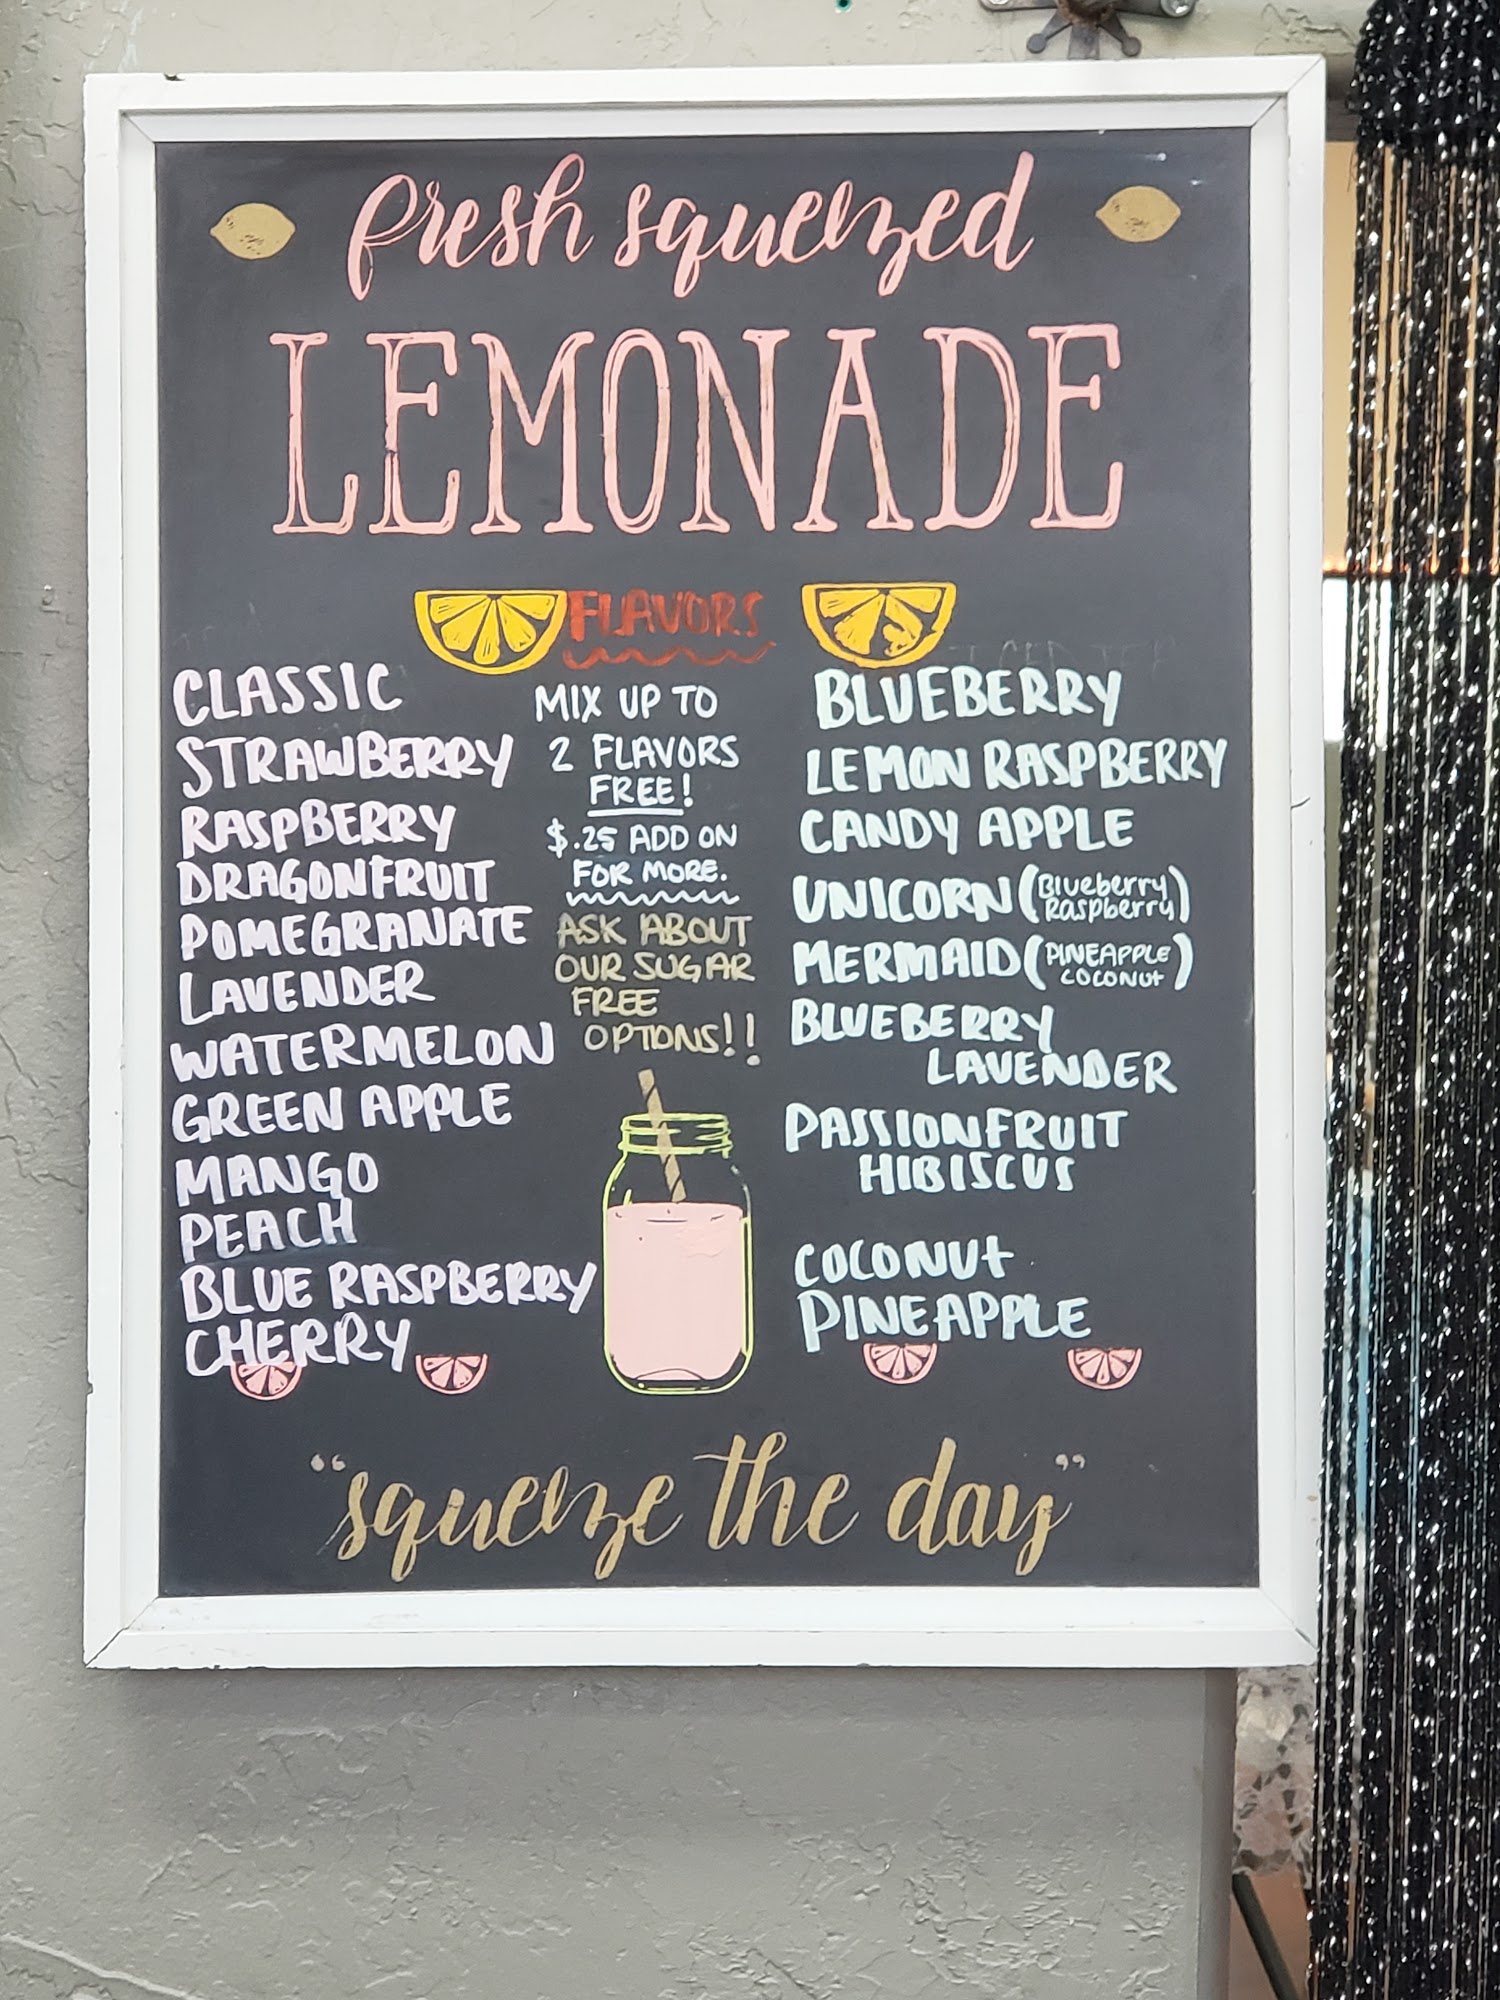 fresh squeezed
LEMONADE
FLAVORS
CLASSIC
STRAWBERRY
RASPBERRY
DRAGONFRUIT
POMEGRANATE
LAVENDER
WATERMELON
GREEN APPLE
MANGO
PEACH
BLUE RASPBERRY
CHERRY
MIX UP TO
2 FLAVORS
FREE!
$.25 ADD ON
FOR MORE.
ASK ABOUT
OUR SUGAR
FREE
OPTIONS!!
BLUEBERRY
LEMON RASPBERRY
CANDY APPLE
UNICORN (Blueberry
Raspberry)
MERMAID (PINEAPPLE
COCONUT)
BLUEBERRY
LAVENDER
PASSIONFRUIT
HIBISCUS
COCONUT
PINEAPPLE
"squeeze the day"